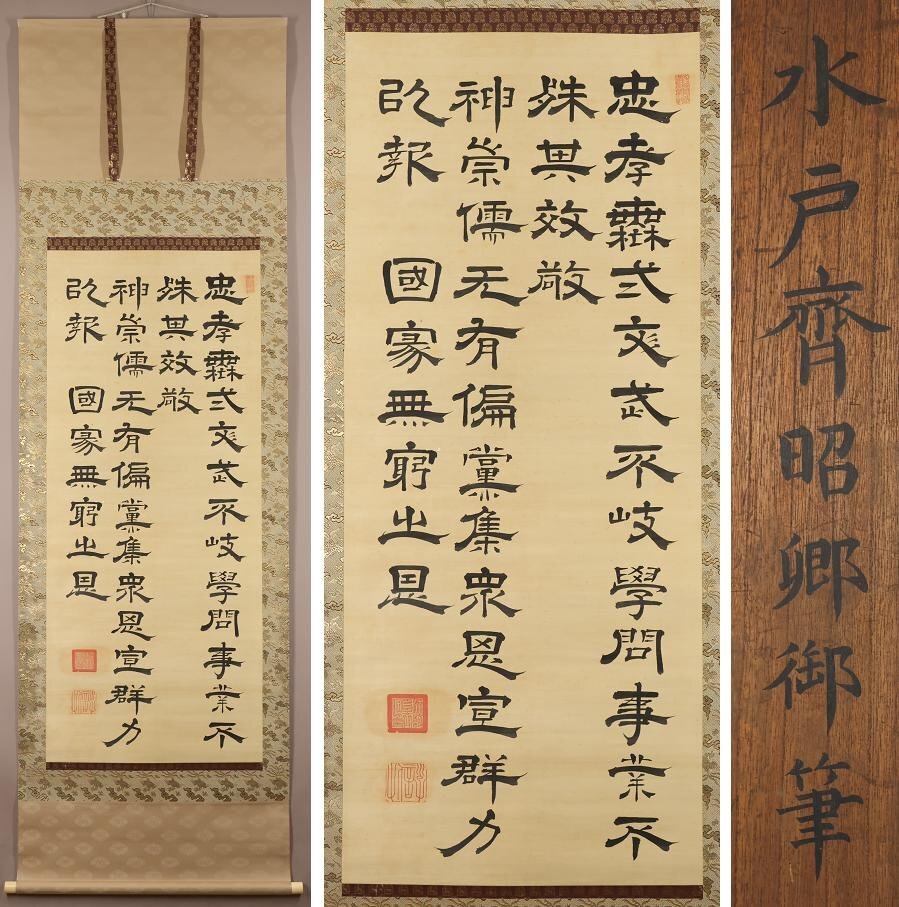 忠孝無弍文武不岐學問事業不
殊其效敬
神崇儒无有偏黨集衆思宣群力
以報　國家無窮之恩
忠孝無弍文武不岐學問事業不
殊其效敬
神崇儒无有偏黨集衆思宣群力
以報　國家無窮之恩
水戸齊昭卿御筆